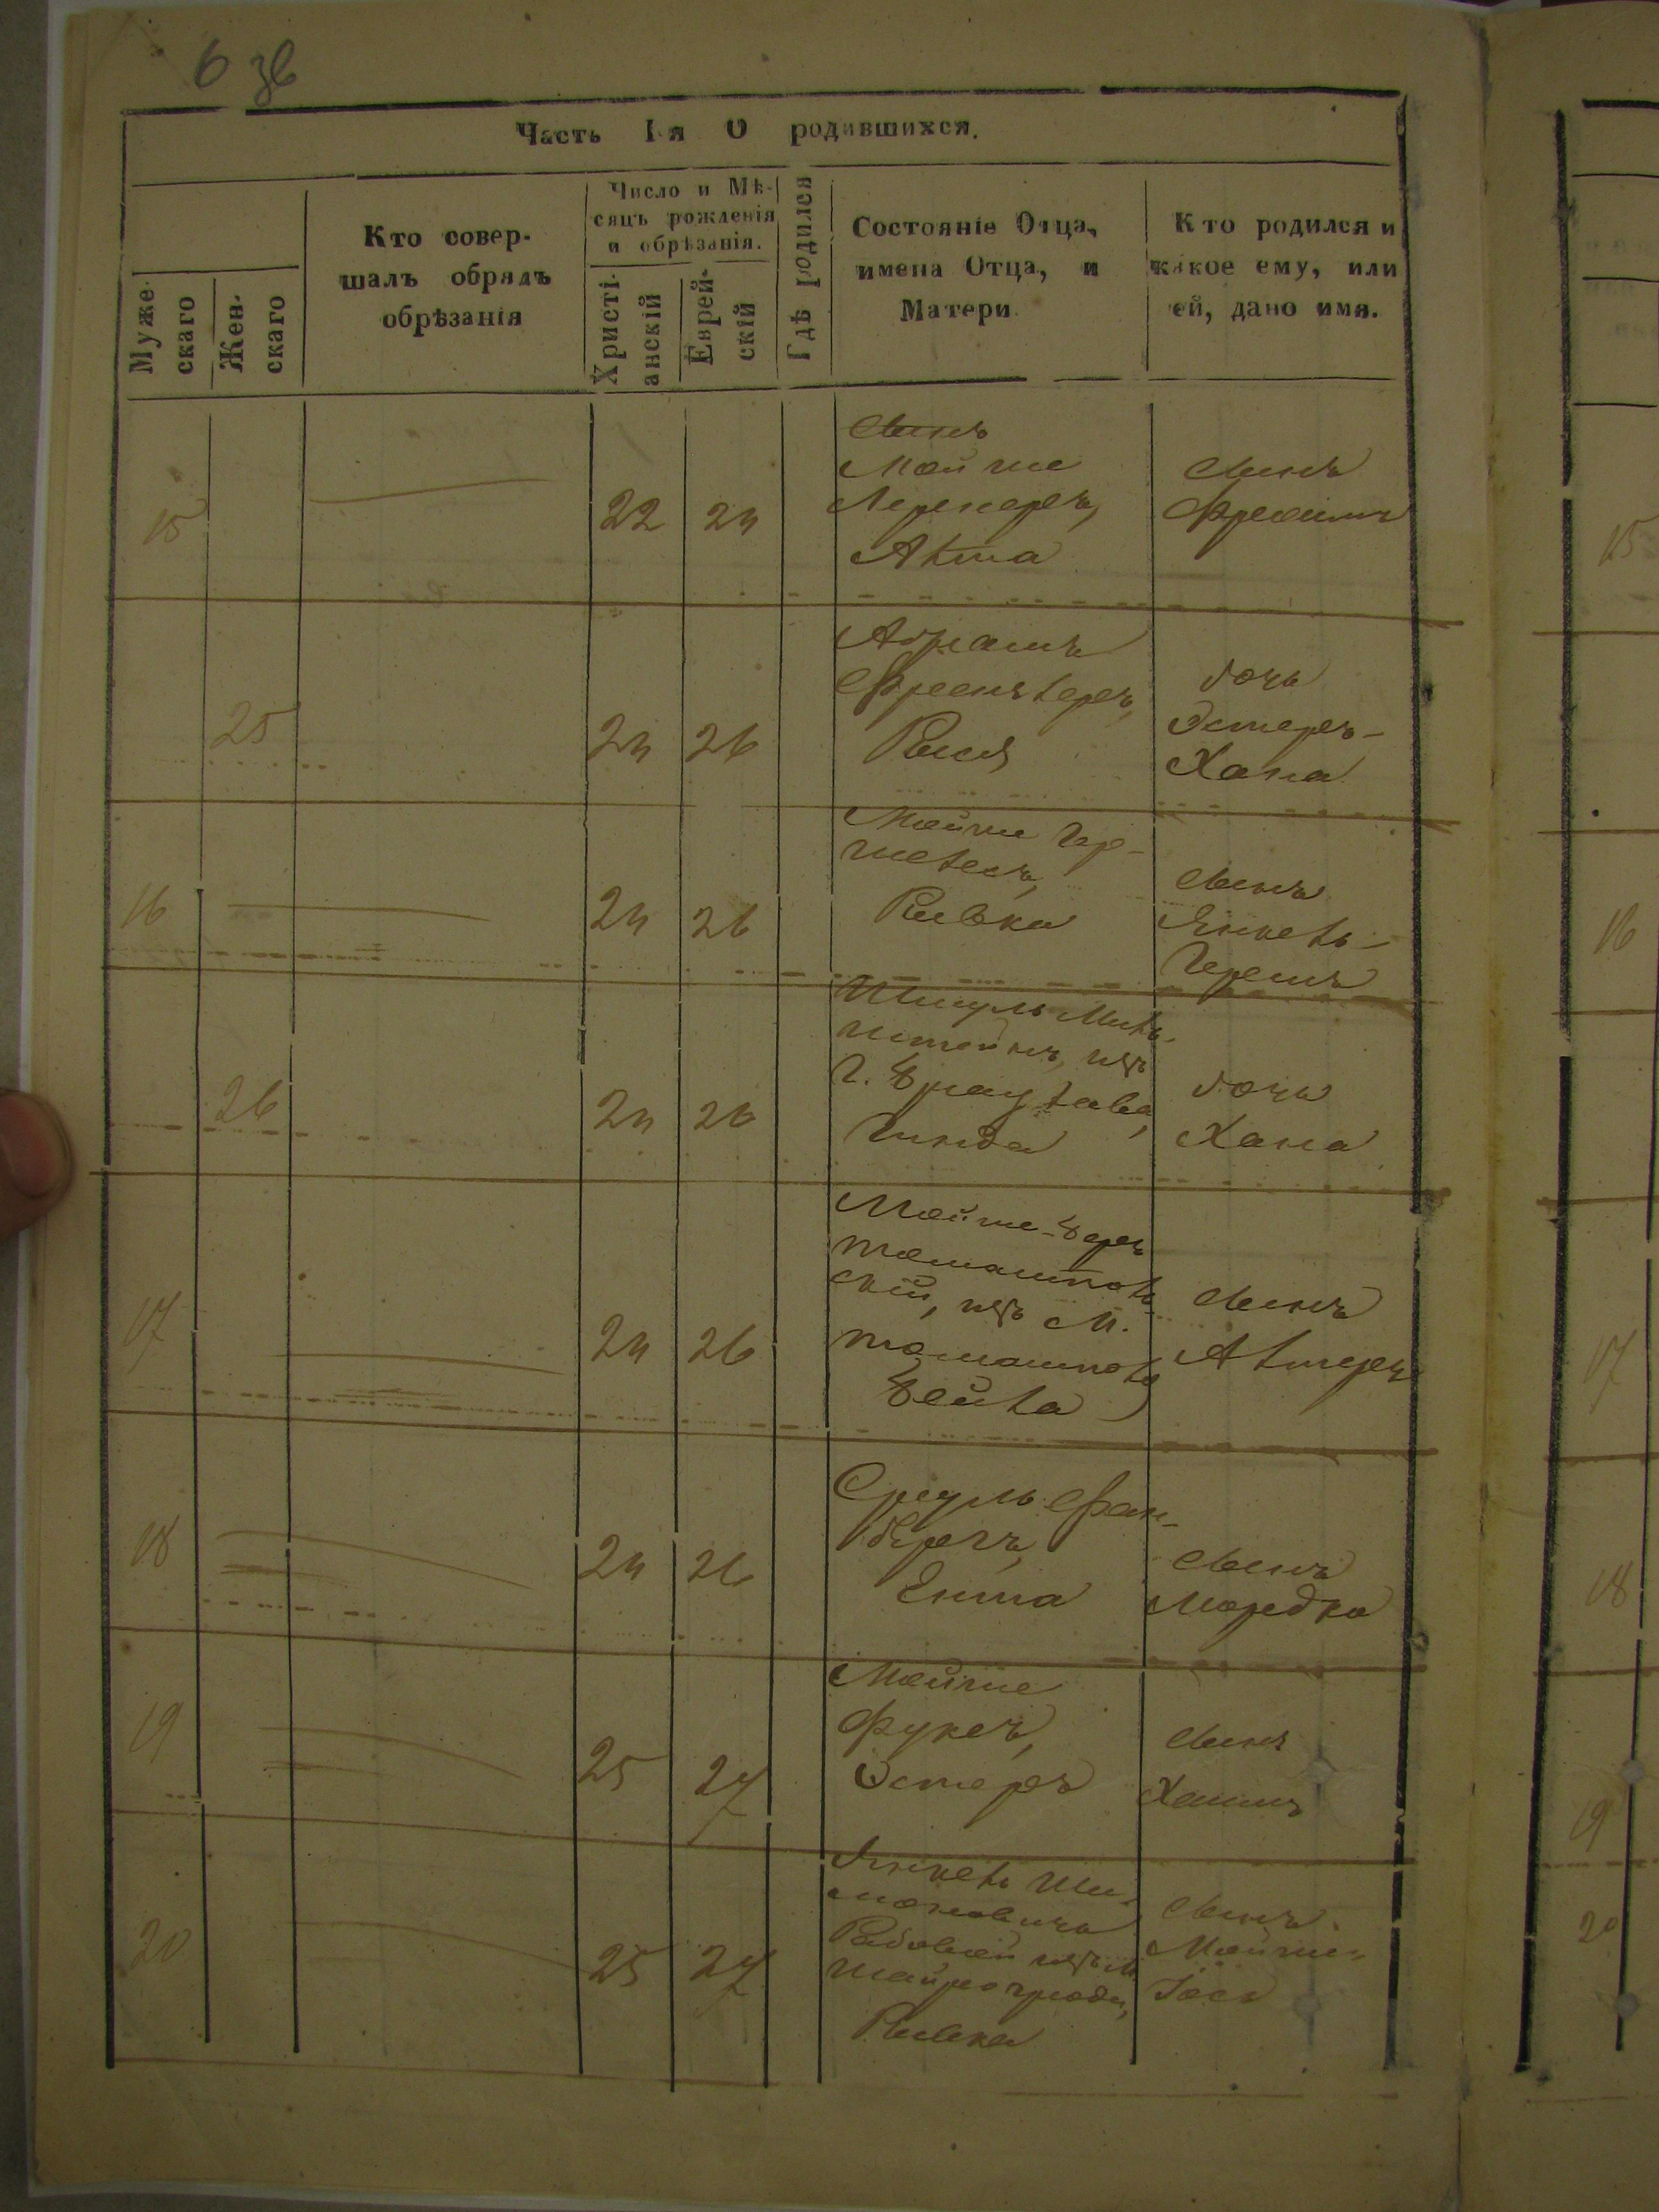 6 зв
Часть I-я О родившихся.
Мужескаго
Женскаго
Кто совер-
шалъ обрядъ
обрѣзанія
Число и Мѣ-
сяцъ рожденія
и обрѣзанія.
Христі-
анскій
Еврей-
скій
Гдѣ родился
Состояніе Отца,
имена Отца, и
Матери.
Кто родился и
какое ему, или
ей, дано имя.
15
22
24
Сынъ
Мойше
Лернеръ,
сынъ
Фроимъ
25
24
26
Абрамъ
Френкель,
Рися
дочь
Эстеръ-
Хана
16
24
26
Мойше Гер-
Ривка
сынъ
Янкель-
Гершъ
26
24
26
Шмуль Миль-
штейнъ, изъ
г. Брацлава,
Гинда
дочь
Хана
17
24
26
Мойше-Беръ
томашполь-
скій, изъ м.
томашполя
Бейла
сынъ
Альтеръ
18
24
26
Сруль Фан-
бергъ,
Ента
сынъ
Мордко
19
25
27
Мойше
Фуксъ,
Эстеръ
сынъ
Хаимъ
20
25
27
Янкель Ши-
моновичъ
изъ м.
Шаргорода,
Ривка
сынъ
Мойше-
Іось
15
16
17
18
19
20